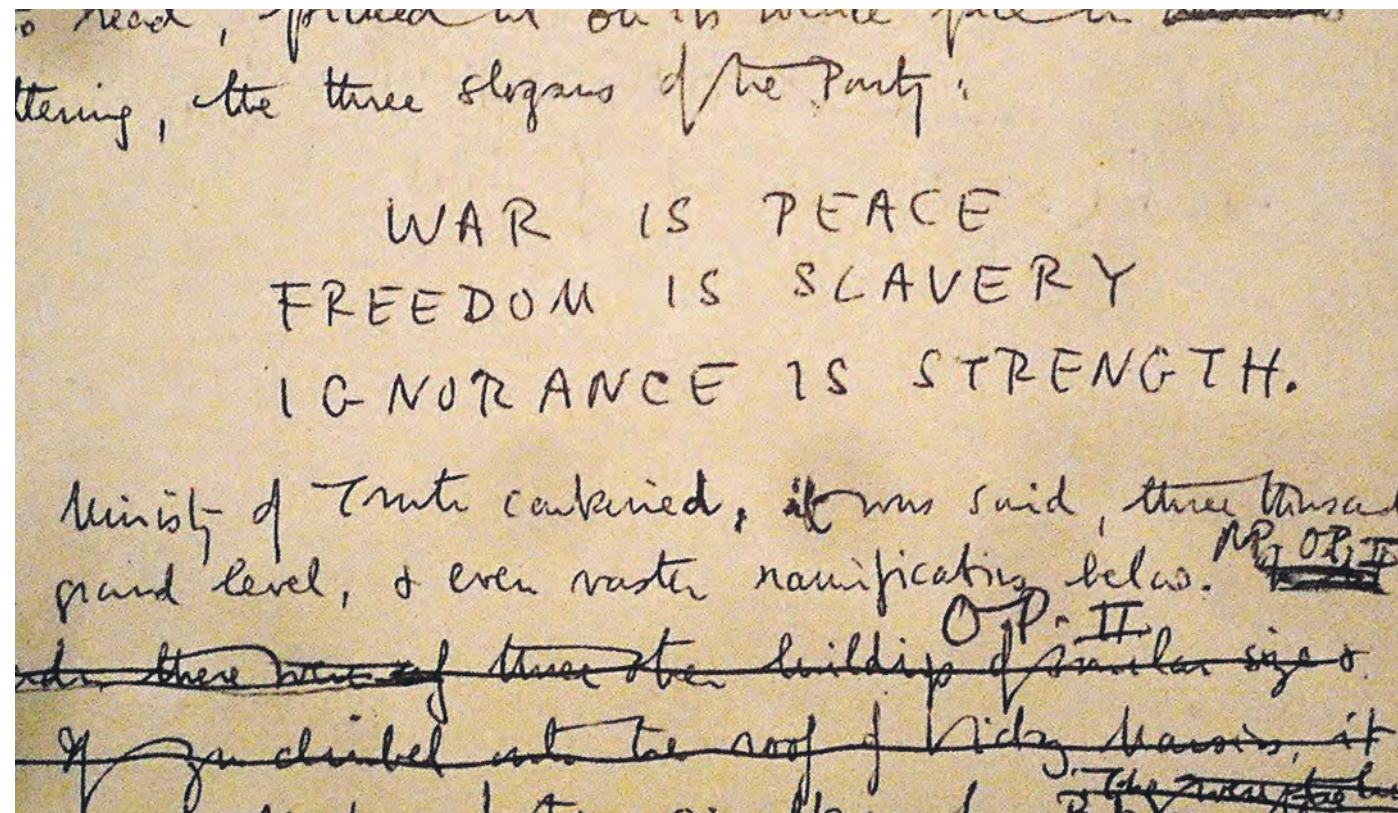 to read, picked out on its white face in
ttering, the three slogans of the Party:
WAR IS PEACE
FREEDOM IS SLAVERY
IGNORANCE IS STRENGTH.
Ministry of Truth contained, it was said, three thousand
ground level, & even vaster ramifications below. OP. II
OP. II
there were three other buildings of similar size &
If you climbed onto the roof of Victory Mansions, it
The